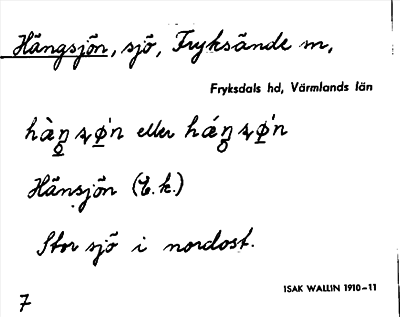 Hängsjön, sjö, Fryksände sn,
Fryksdals hd, Värmlands län
eller
Hänsjön (E.k.)
Stor sjö i nordost.
ISAK WALLIN 1910-11
7